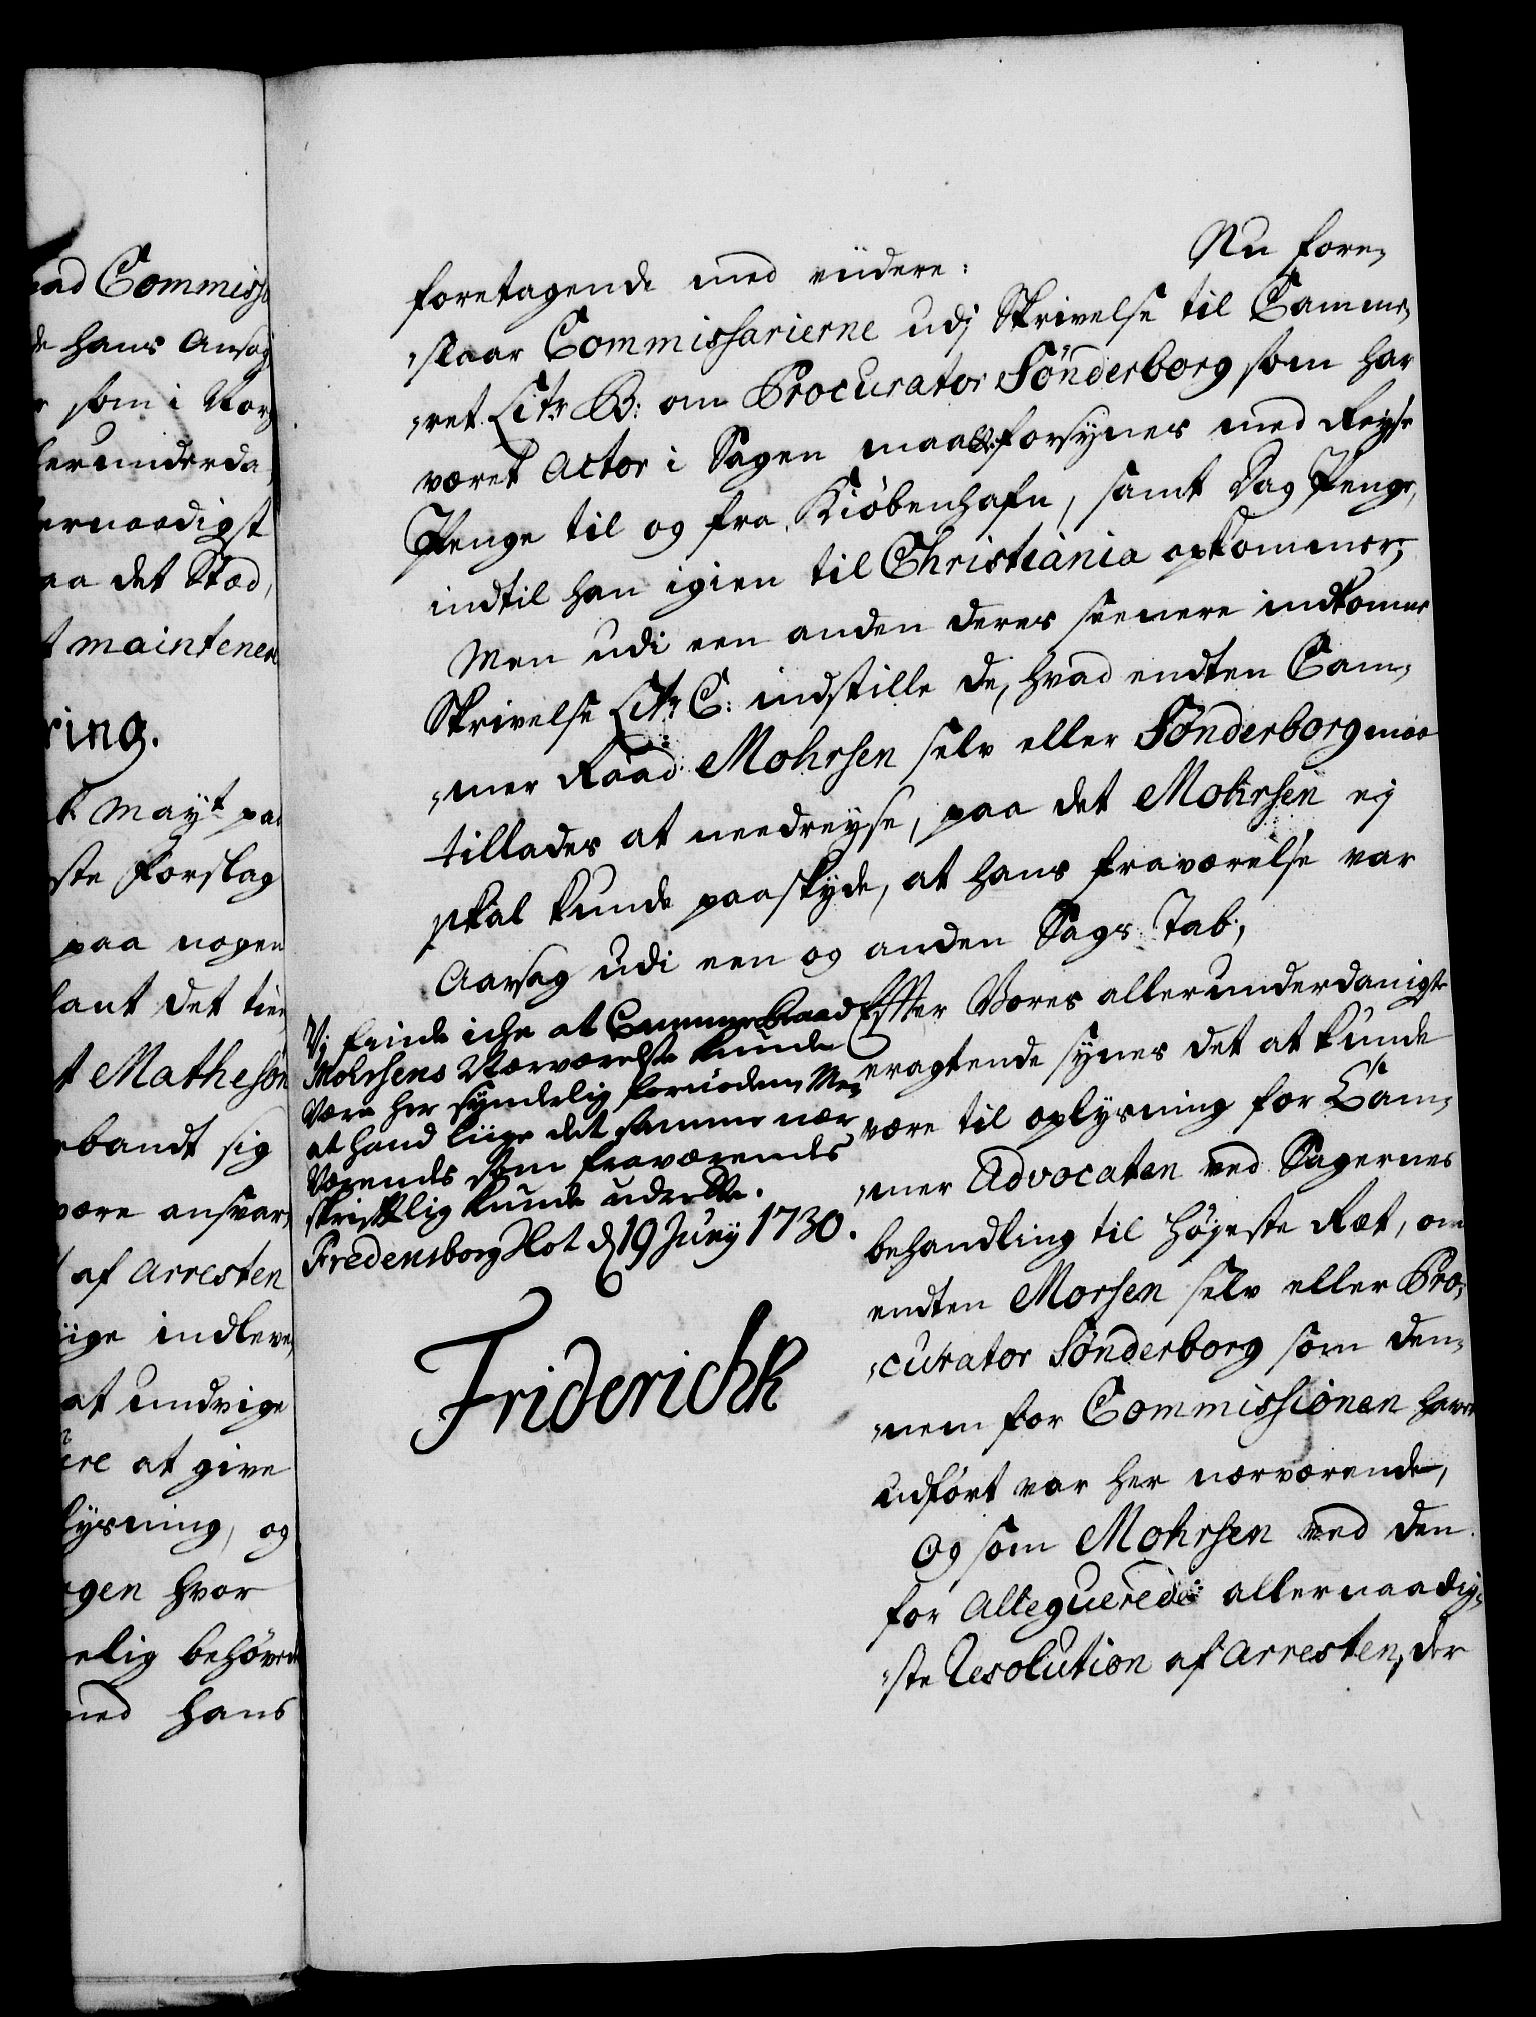 ad Commiss
de hans Ansøg
som i Nor
lerunderda
ernaadigst
aa det Stæd,
t maintener
ring.
t Mayt paa
ste Forslag
paa nogen
lant det tien
t Mathesen
rbandt sig
være ansvar
af Arresten
ige indleve
at undvige
ere at give
lysning, og
gen hvor
elig behøvede
med hans
foretagende med viidere: Nu fore„
„slaar Commissarierne udj Skrivelse til Camme„
„ret Litr B: om Procurator Sönderborg som har
været Actor i Sagen maatte forsynes med Reyse
Penge til og fra Kiöbenhafn, samt Dag Penge,
indtil han igien til Christiania opkommer;
Men udi een anden deres seenere indkomne
Skrivelse Litr C: indstille de, hvad endten Cam„
„mer Raad Mohrsen selv eller Sönderborg maa
tillades at needreyse, paa det Mohrsen ej
skal kunde paaskyde, at hans fraværelse var
Aarsag udi een og anden Sags Tab;
Efter Vores allerunderdanigste
eragtende synes det at kunde
være til oplysning for Cam„
„mer Advocaten ved Sagernes
behandling til Høyeste Ræt, om
endten Morsen selv eller Pro„
„curator Sönderborg som den„
„nem for Commissionen haver
udført var her nærværende,
Og som Mohrsen ved den
for Alleguerede allernaadig„
„ste Resolution af Arresten, der
Vj finde iche at Cammer Raad
Mohrsens Nærværelse kunde
være her synderlig fornøden, Men
at hand liige det samme nær
værende som fraværende
skriftlig kunde udrette.
Fredensborg Slot d 19 Junij 1730.
Friderich R